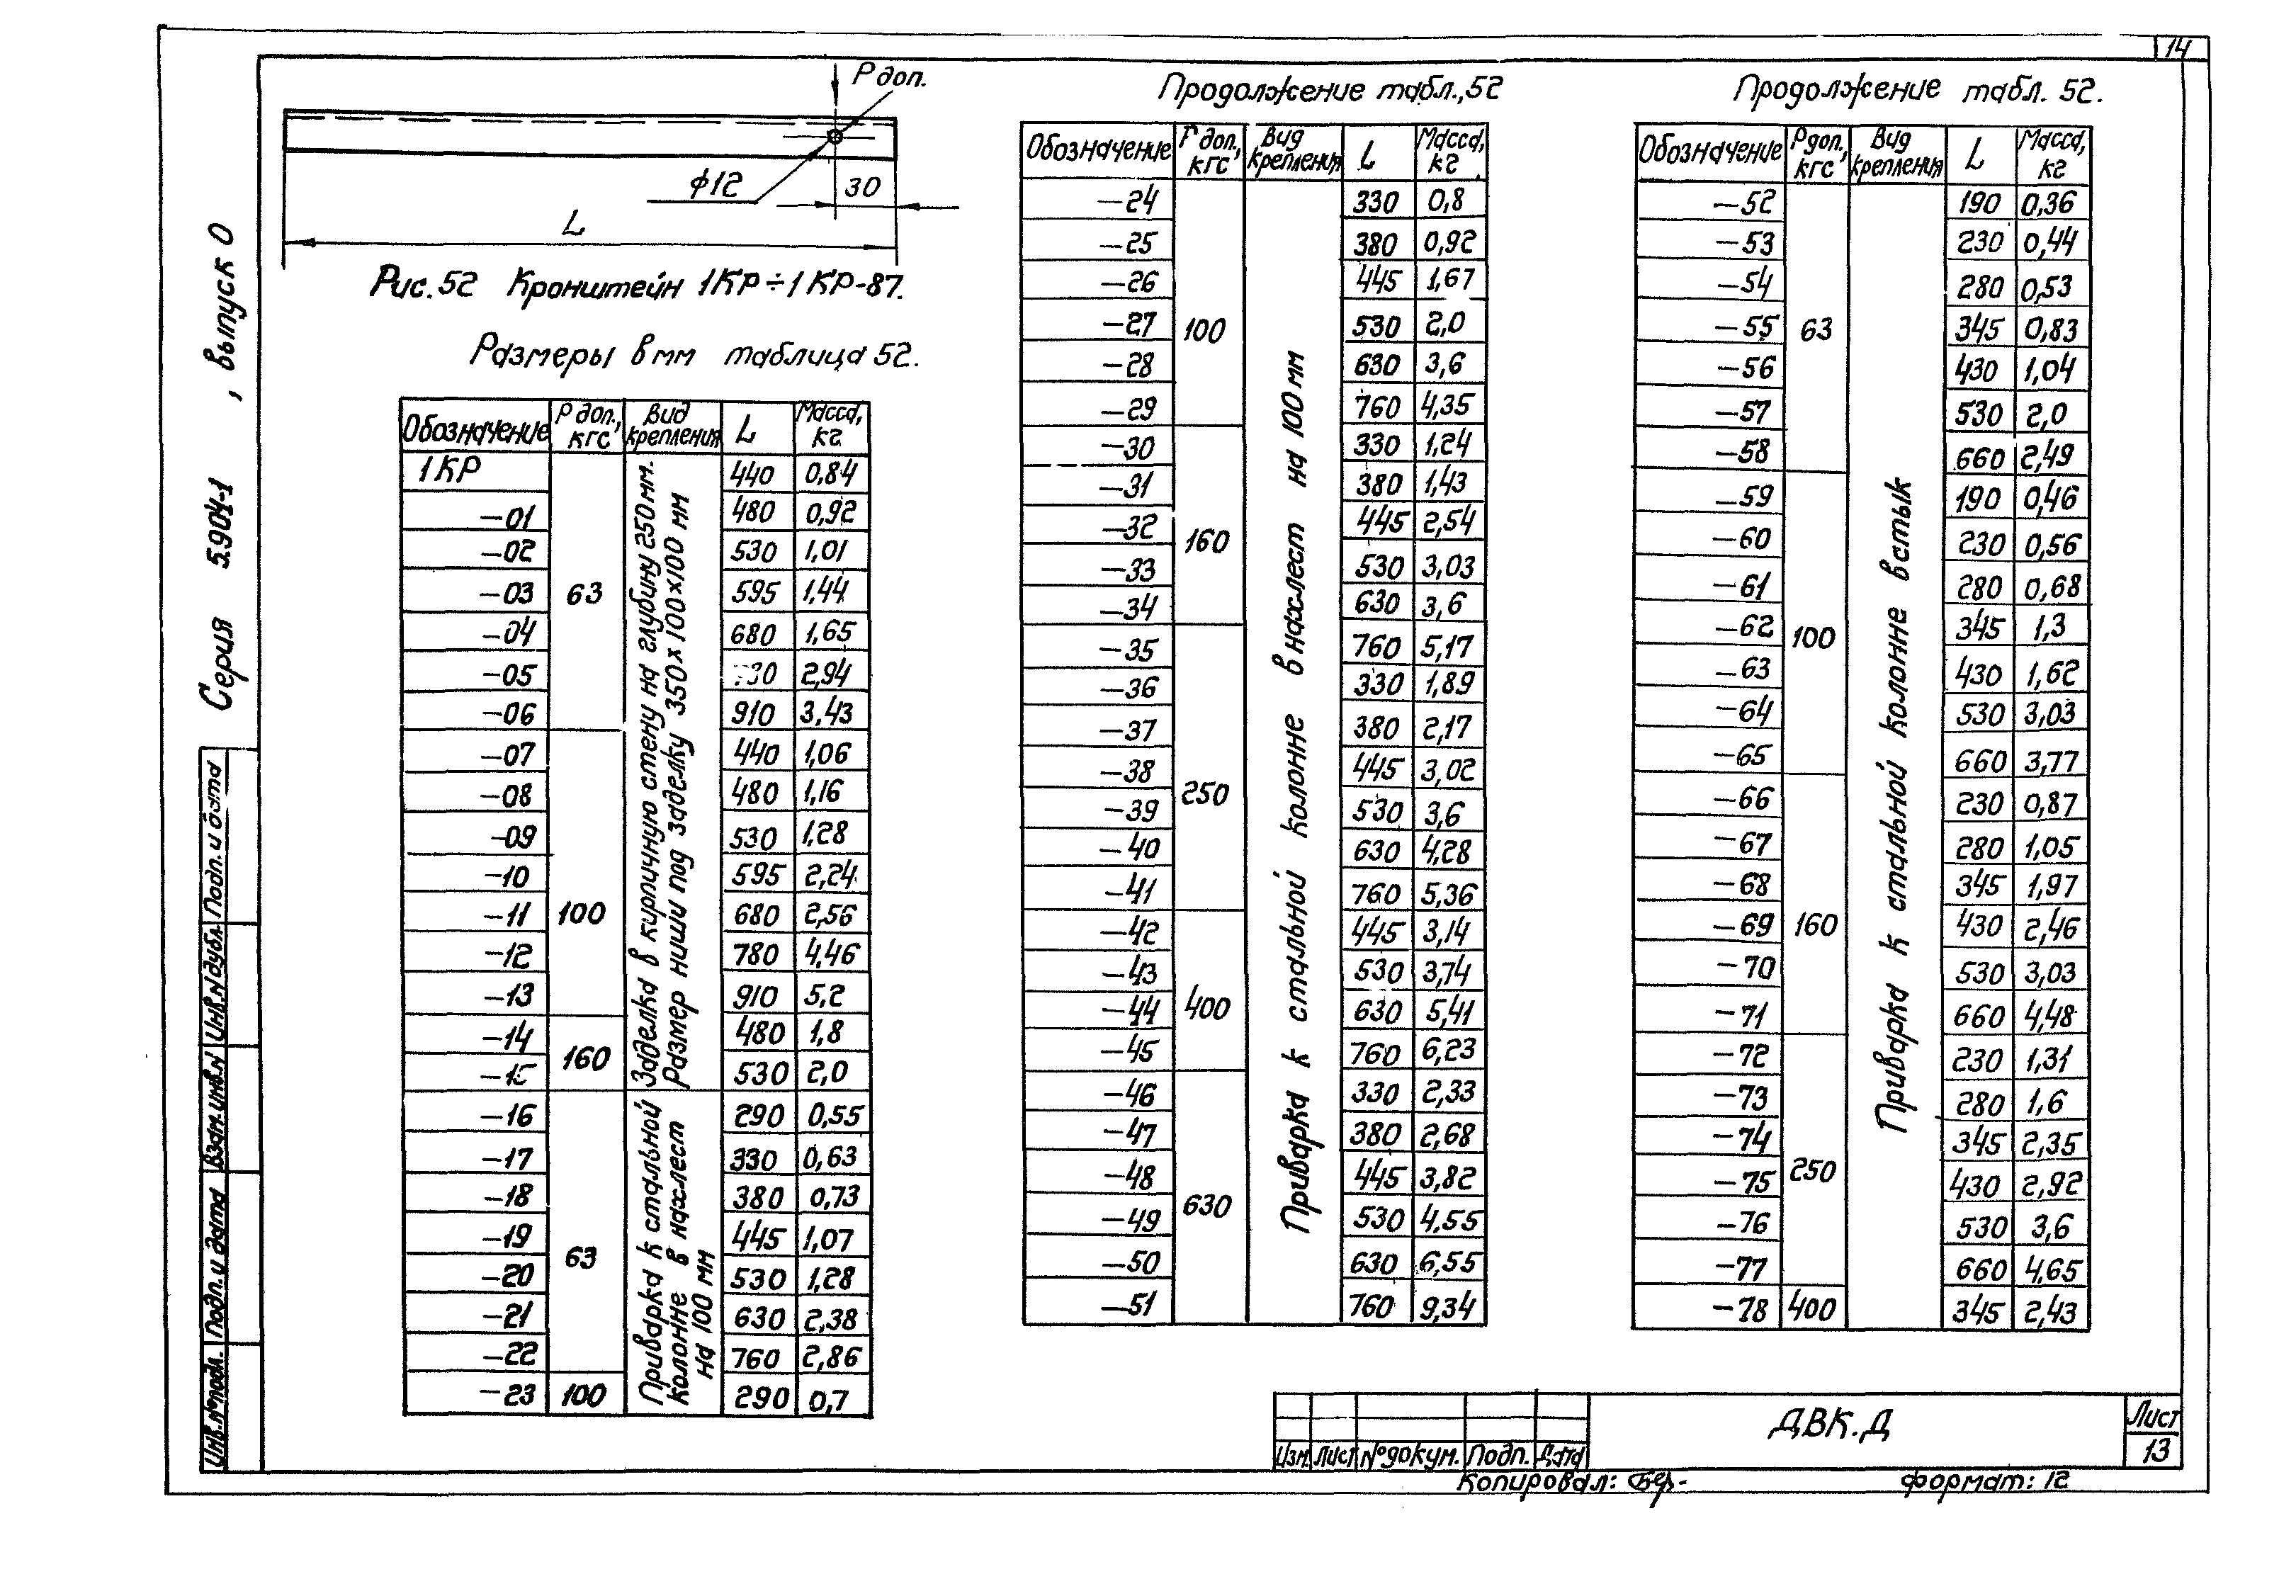 14
Р доп.
ф12
30
L
Рис. 52 Кронштейн 1КР÷1КР-87.
Размеры в мм таблица 52.
Обозначение Р доп., кгс Вид крепления L Масса, кг
1КР 63 Заделка в кирпичную стену на глубину 250 мм. Размер ниши под заделку 350х100х100 мм 440 0,84
-01 480 0,92
-02 530 1,01
-03 595 1,44
-04 680 1,65
-05 2,94
-06 910 3,43
-07 100 440 1,06
-08 480 1,16
-09 530 1,28
-10 595 2,24
-11 680 2,56
-12 780 4,46
-13 910 5,2
-14 160 480 1,8
-15 530 2,0
-16 63 Приварка к стальной колонне в нахлест на 100 мм 290 0,55
-17 330 0,63
-18 380 0,73
-19 445 1,07
-20 530 1,28
-21 630 2,38
-22 760 2,86
-23 100 290 0,7
Продолжение табл., 52
Обозначение Р доп., кгс Вид крепления L Масса, кг
-24 100 Приварка к стальной колонне в нахлест на 100 мм 330 0,8
-25 380 0,92
-26 445 1,67
-27 530 2,0
-28 630 3,6
-29 760 4,35
-30 160 330 1,24
-31 380 1,43
-32 445 2,54
-33 530 3,03
-34 630 3,6
-35 250 760 5,17
-36 330 1,89
-37 380 2,17
-38 445 3,02
-39 530 3,6
-40 630 4,28
-41 760 5,36
-42 400 445 3,14
-43 530 3,74
-44 630 5,41
-45 760 6,23
-46 630 330 2,33
-47 380 2,68
-48 445 3,82
-49 530 4,55
-50 630 6,55
-51 760 9,34
Продолжение табл. 52.
Обозначение Рдоп., кгс Вид крепления L Масса, кг
-52 63 Приварка к стальной колонне встык 190 0,36
-53 230 0,44
-54 280 0,53
-55 345 0,83
-56 430 1,04
-57 530 2,0
-58 660 2,49
-59 100 190 0,46
-60 230 0,56
-61 280 0,68
-62 345 1,3
-63 430 1,62
-64 530 3,03
-65 660 3,77
-66 160 230 0,87
-67 280 1,05
-68 345 1,97
-69 430 2,46
-70 530 3,03
-71 660 4,48
-72 250 230 1,31
-73 280 1,6
-74 345 2,35
-75 430 2,92
-76 530 3,6
-77 660 4,65
-78 400 345 2,43
Серия 5.904-1 , выпуск 0
Инв.№подл. Подп. и дата Взам.инв.N Инв.N дубл. Подп. и дата
Изм. Лист №докум. Подп. Дата
ДВК.Д
Лист
13
Копировал:
Формат: 12